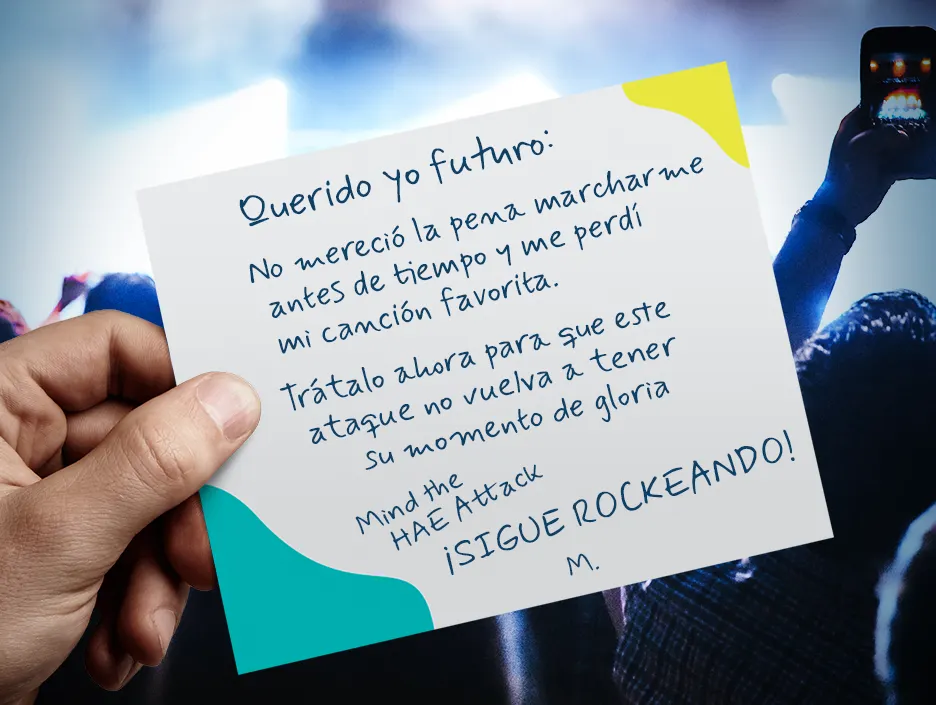 Querido yo futuro:
No mereció la pena marcharme
antes de tiempo y me perdí
mi canción favorita.
Trátalo ahora para que este
ataque no vuelva a tener
su momento de gloria
Mind the
HAE Attack
¡SIGUE ROCKEANDO!
M.